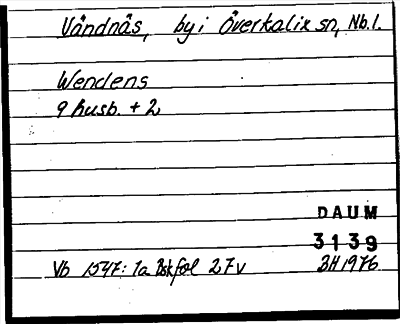 Vändnäs, by i Överkalix sn, Nb.l.
Wendens
9 husb. + 2
DAUM
3139
Vb 1547: 1a Bskfol 27v
BH 1976